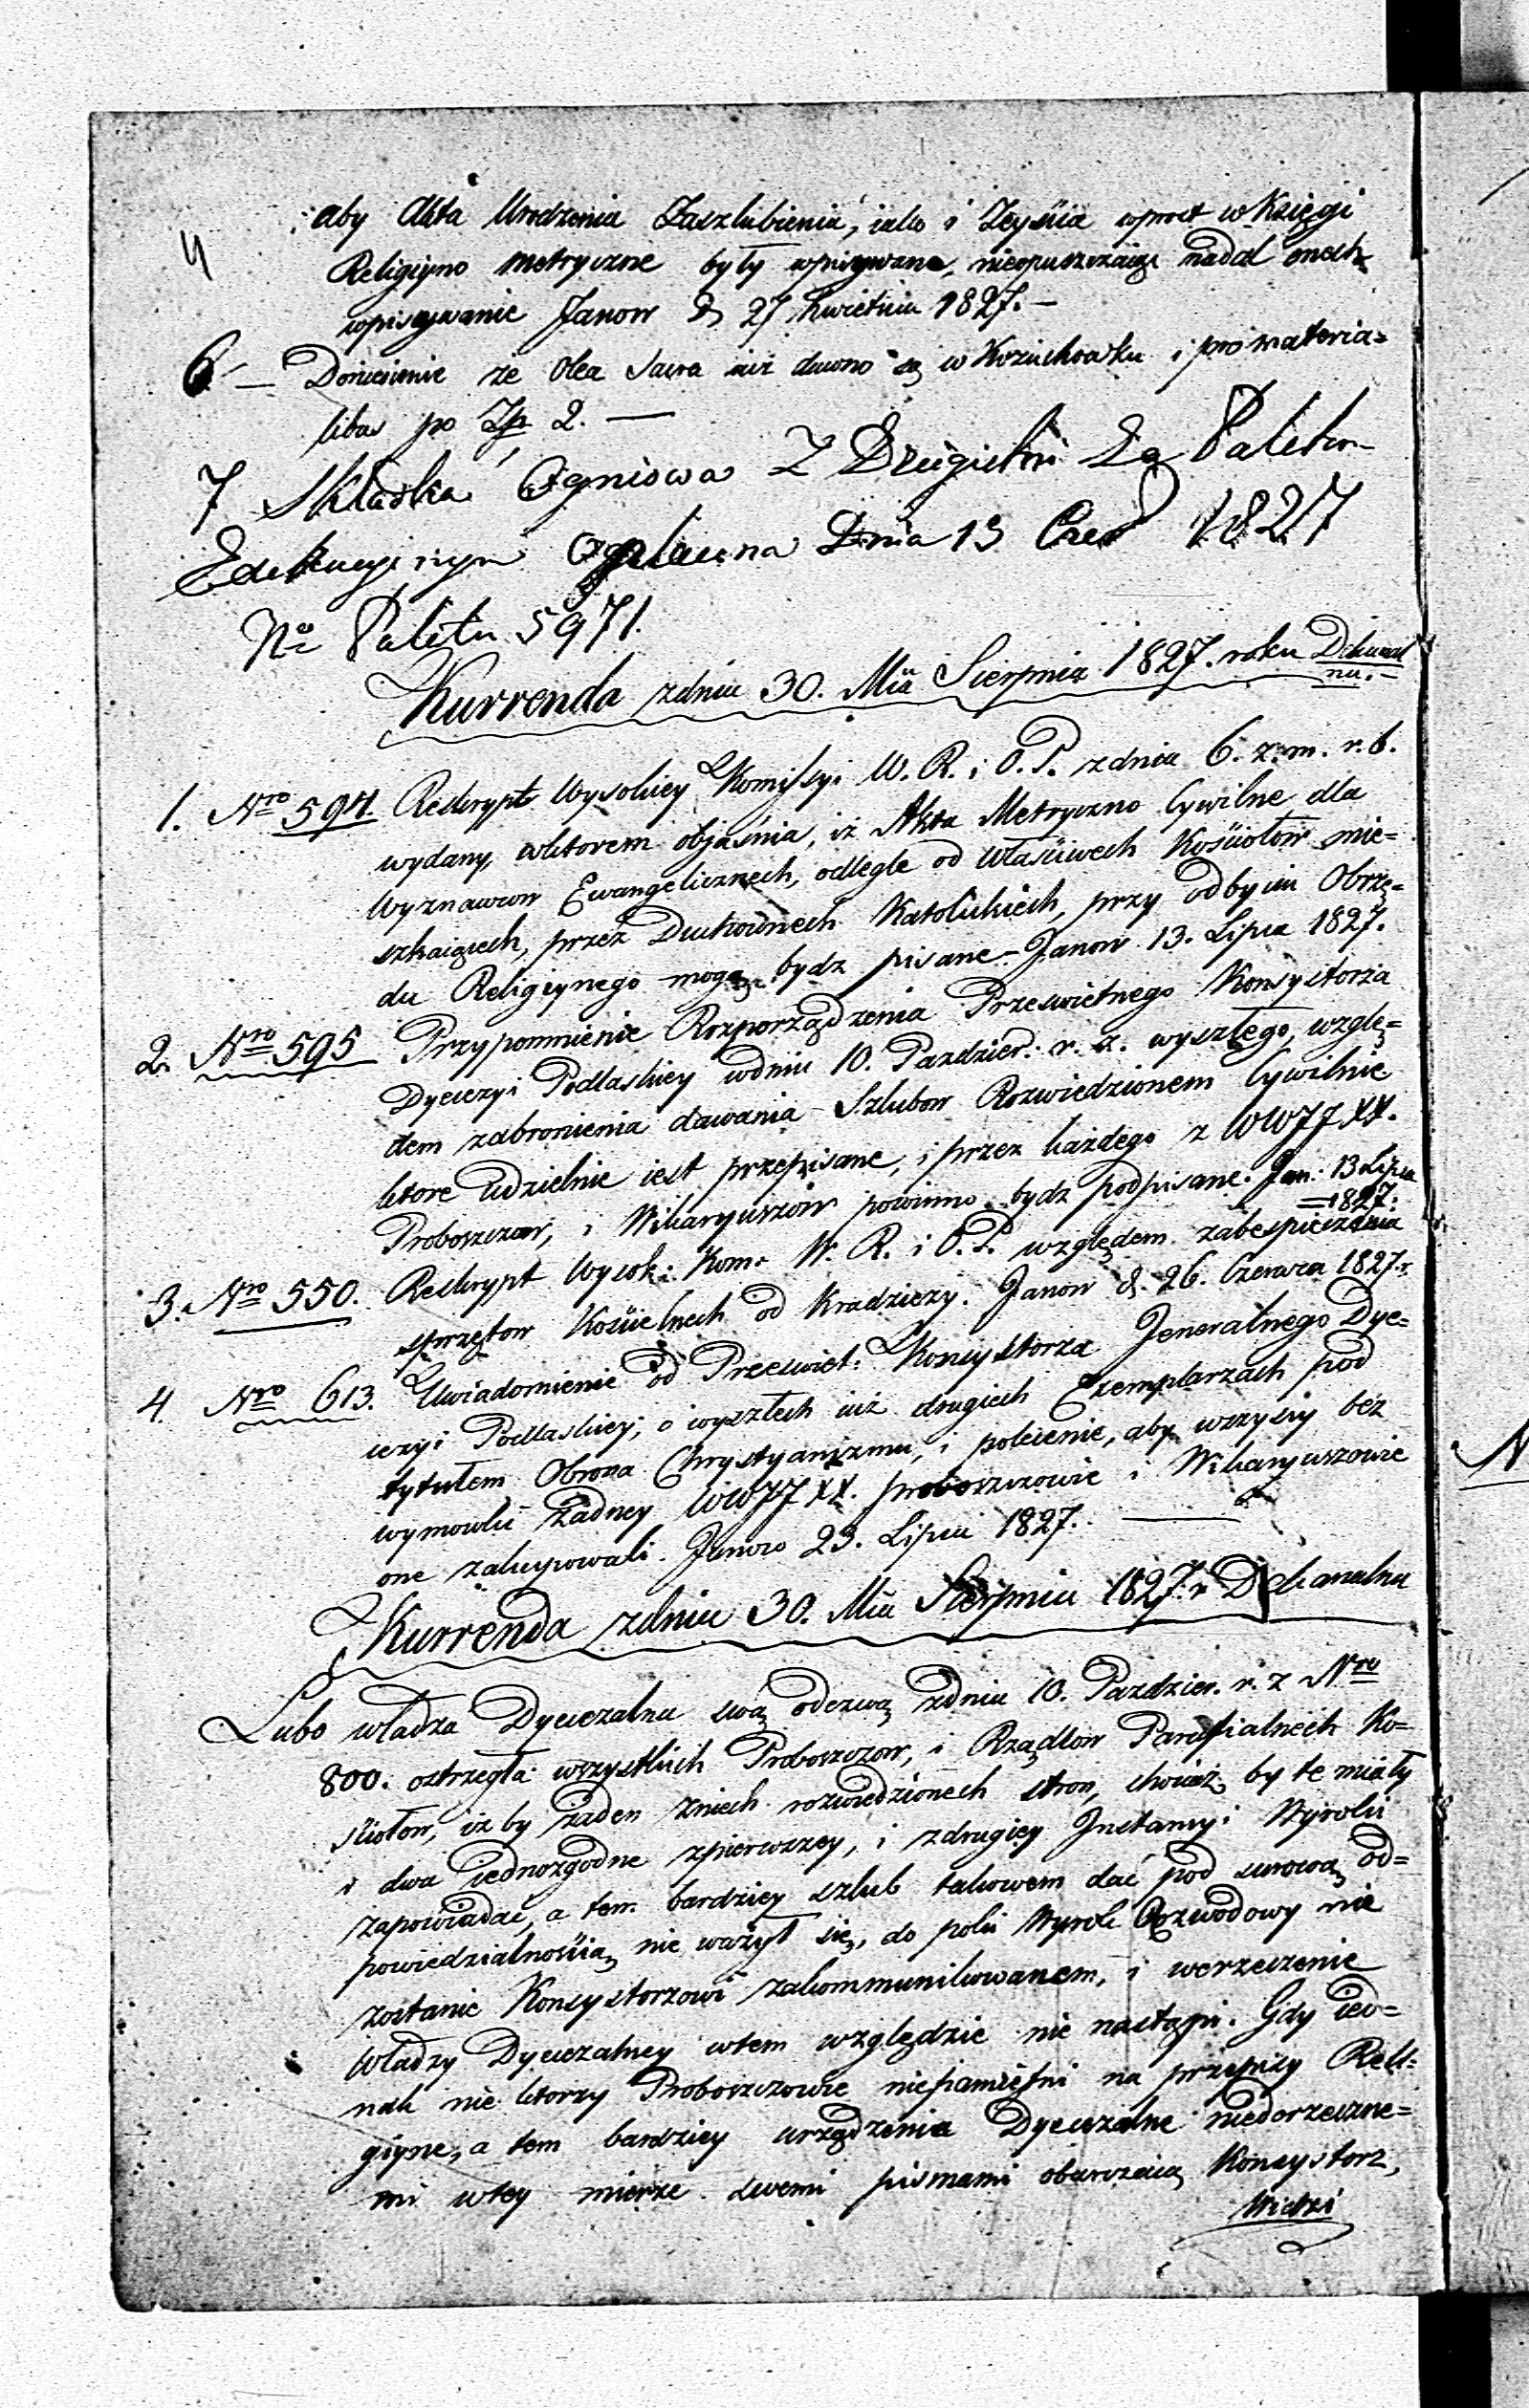 4
aby Akta Urodzenia Zaszlubienia, iako i Zeyścia wprost w Księgi
Religiyno metryczne były wpisywane, nieopuszczaiąc nadal onech
wpisywanie Janow D 27 Kwietnia 1827. –
6 – Doniesienie że Olea Sacra iuż dawno są w Kozuchowku i pro materia=
libus po Zp. 2. —
7 Składka Ogniowa Z Dzigietni Za Paletem
Exekucyjnym Opłacona Dnia 13 Czer 1827
No Paletu 5971.
Kurrenda zdnia 30. Mca Sierpnia 1827. roku Dekanal
na. –
1. Nro 594. Reskrypt Wysokiey Kommissyi W. R. i O. P. z dnia 6. z. m. r. b.
wydany, wktorem objaśnia, iż Akta Metryczno Cywilne dla
Wyznawcow Ewangelicznech, odległe od Właściwech Kościołów mie=
szkaiącech, przez Duchownech Katolickiech, przy odbyciu Obrzę=
du Religiynego mogą bydz pisane – Janow 13. Lipca 1827.
2. Nro 595 Przypomnienie Rozporządzenia Prześwietnego Konsystorza
Dyecezyi Podlaskiey wdniu 10. Pazdzier: r. z. wyszłego, wzglę=
dem zabronienia dawania Szlubow Rozwiedzionem Cywilnie
ktore udzielnie iest przepisane, i przez każdego z WWJJ XX.
Proboszczow, i Wikaryuszów powinno bydz podpisane. Jan: 13 Lipca
= 1827:
3. Nro 550. Reskrypt Wysok: Kom. W. R. i O. P. względem zabespieczenia
sprzętow Kościelnech od Kradzieży. Janow d. 26. Czerwca 1827 r.
4. Nro 613. Uwiadomienie od Przeświet: Konsystorza Jeneralnego Dye=
cezyi Podlaskiey, o wyszłech iuż drugiech Exemplarzach pod
tytułem Obrona Chrystyanizmu, i polecenie, aby wszyscy bez
wymowki żadney WWJJ XX. proboszczowie i Wikaryuszowie
one zakupowali. Janow 23. Lipca 1827. —
Kurrenda zdnia 30. Mca Sierpnia 1827. r Dekanalna
Lubo władza Dyecezalna swą odezwą zdnia 10. Pazdzier. r. z Nro
800. ostrzegła wszystkich Proboszczow, i Rządcow Parafialnech Ko=
ściołow, iż by żaden zniech rozwiedzionech stron, chociaż by te miały
i dwa iednozgodne zpierwszey, i zdrugiey Instancyi Wyroki
zapowiadać, a tem bardziey szlub takowem dać pod surową od=
powiedzialnością nie ważył się, do poki Wyrok Rozwodowy nie
zostanie Konsystorzowi zakommunikowanem, i werzeczenie
Władzy Dyecezalney wtem względzie nie nastąpi. Gdy ied=
nak nie ktorzy Proboszczowie niepamiętni na przepisy Reli=
giyne, a tem bardziey urządzenia Dyecezalne niedorzeczne=
mi wtey mierze swemi pismami obarczaią Konsystorz,
Widzi